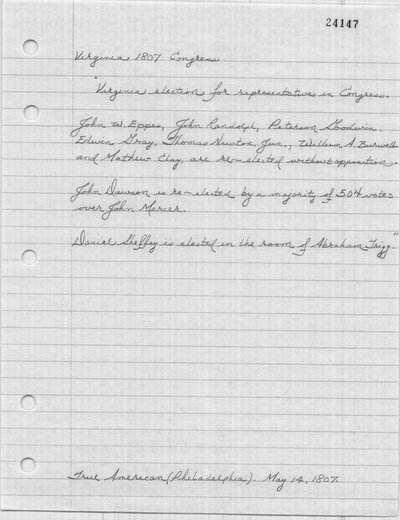 24147
Virginia 1807 Congress
"Virginia election for representatives in Congress.
John W. Eppes, John Randolph, Peterson Goodwin,
Edwin Gray, Thomas Newton, Jun., William A. Burwell
and Mathew Clay, are re-elected without opposition.
John Dawson is re-elected by a majority of 504 votes
over John Mercer.
Daniel Sheffey is elected in the room of Abraham Trigg."
True American (Philadelphia). May 14, 1807.